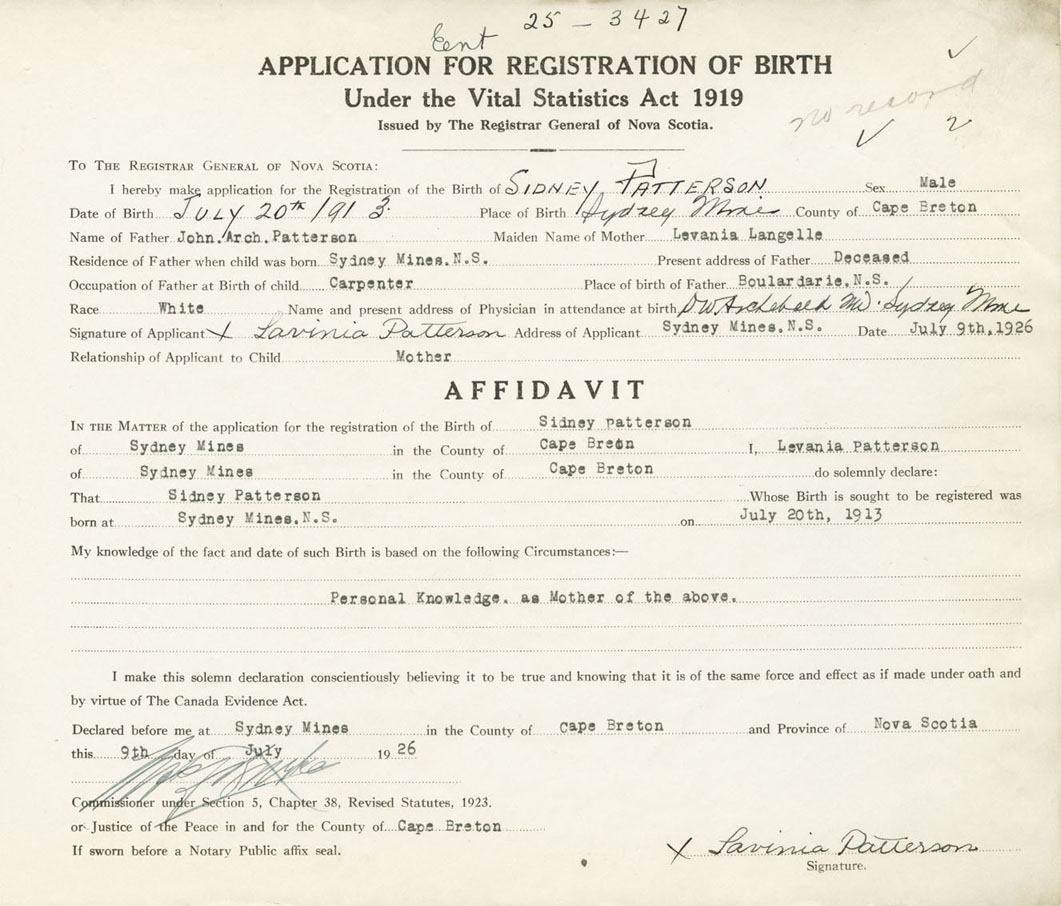 25 - 3427
Ent
APPLICATION FOR REGISTRATION OF BIRTH
Under the Vital Statistics Act 1919
no record
2
Issued by The Registrar General of Nova Scotia.
To The Registrar General of Nova Scotia:
I hereby make application for the Registration of the Birth of SIDNEY PATTERSON Sex Male
Date of Birth JULY 20th 1913. Place of Birth Sydney Mines County of Cape Breton
Name of Father John.Arch.Patterson Maiden Name of Mother Levania Langelle
Residence of Father when child was born Sydney Mines.N.S. Present address of Father Deceased
Occupation of Father at Birth of child Carpenter Place of birth of Father Boulardarie,N.S.
Race White Name and present address of Physician in attendance at birth DW Archibald MD. Sydney Mine
Signature of Applicant X Lavinia Patterson Address of Applicant Sydney Mines.N.S. Date July 9th,1926
Relationship of Applicant to Child Mother
AFFIDAVIT
In the Matter of the application for the registration of the Birth of Sidney Patterson
of Sydney Mines in the County of Cape Breton I, Levania Patterson
of Sydney Mines in the County of Cape Breton do solemnly declare:
That Sidney Patterson Whose Birth is sought to be registered was
born at Sydney Mines.N.S. on July 20th, 1913
My knowledge of the fact and date of such Birth is based on the following Circumstances:—
Personal Knowledge. as Mother of the above.
I make this solemn declaration conscientiously believing it to be true and knowing that it is of the same force and effect as if made under oath and
by virtue of The Canada Evidence Act.
Declared before me at Sydney Mines in the County of Cape Breton and Province of Nova Scotia
this 9th day of July 1926
Commissioner under Section 5, Chapter 38, Revised Statutes, 1923.
or Justice of the Peace in and for the County of Cape Breton
If sworn before a Notary Public affix seal.
X Lavinia Patterson
Signature.